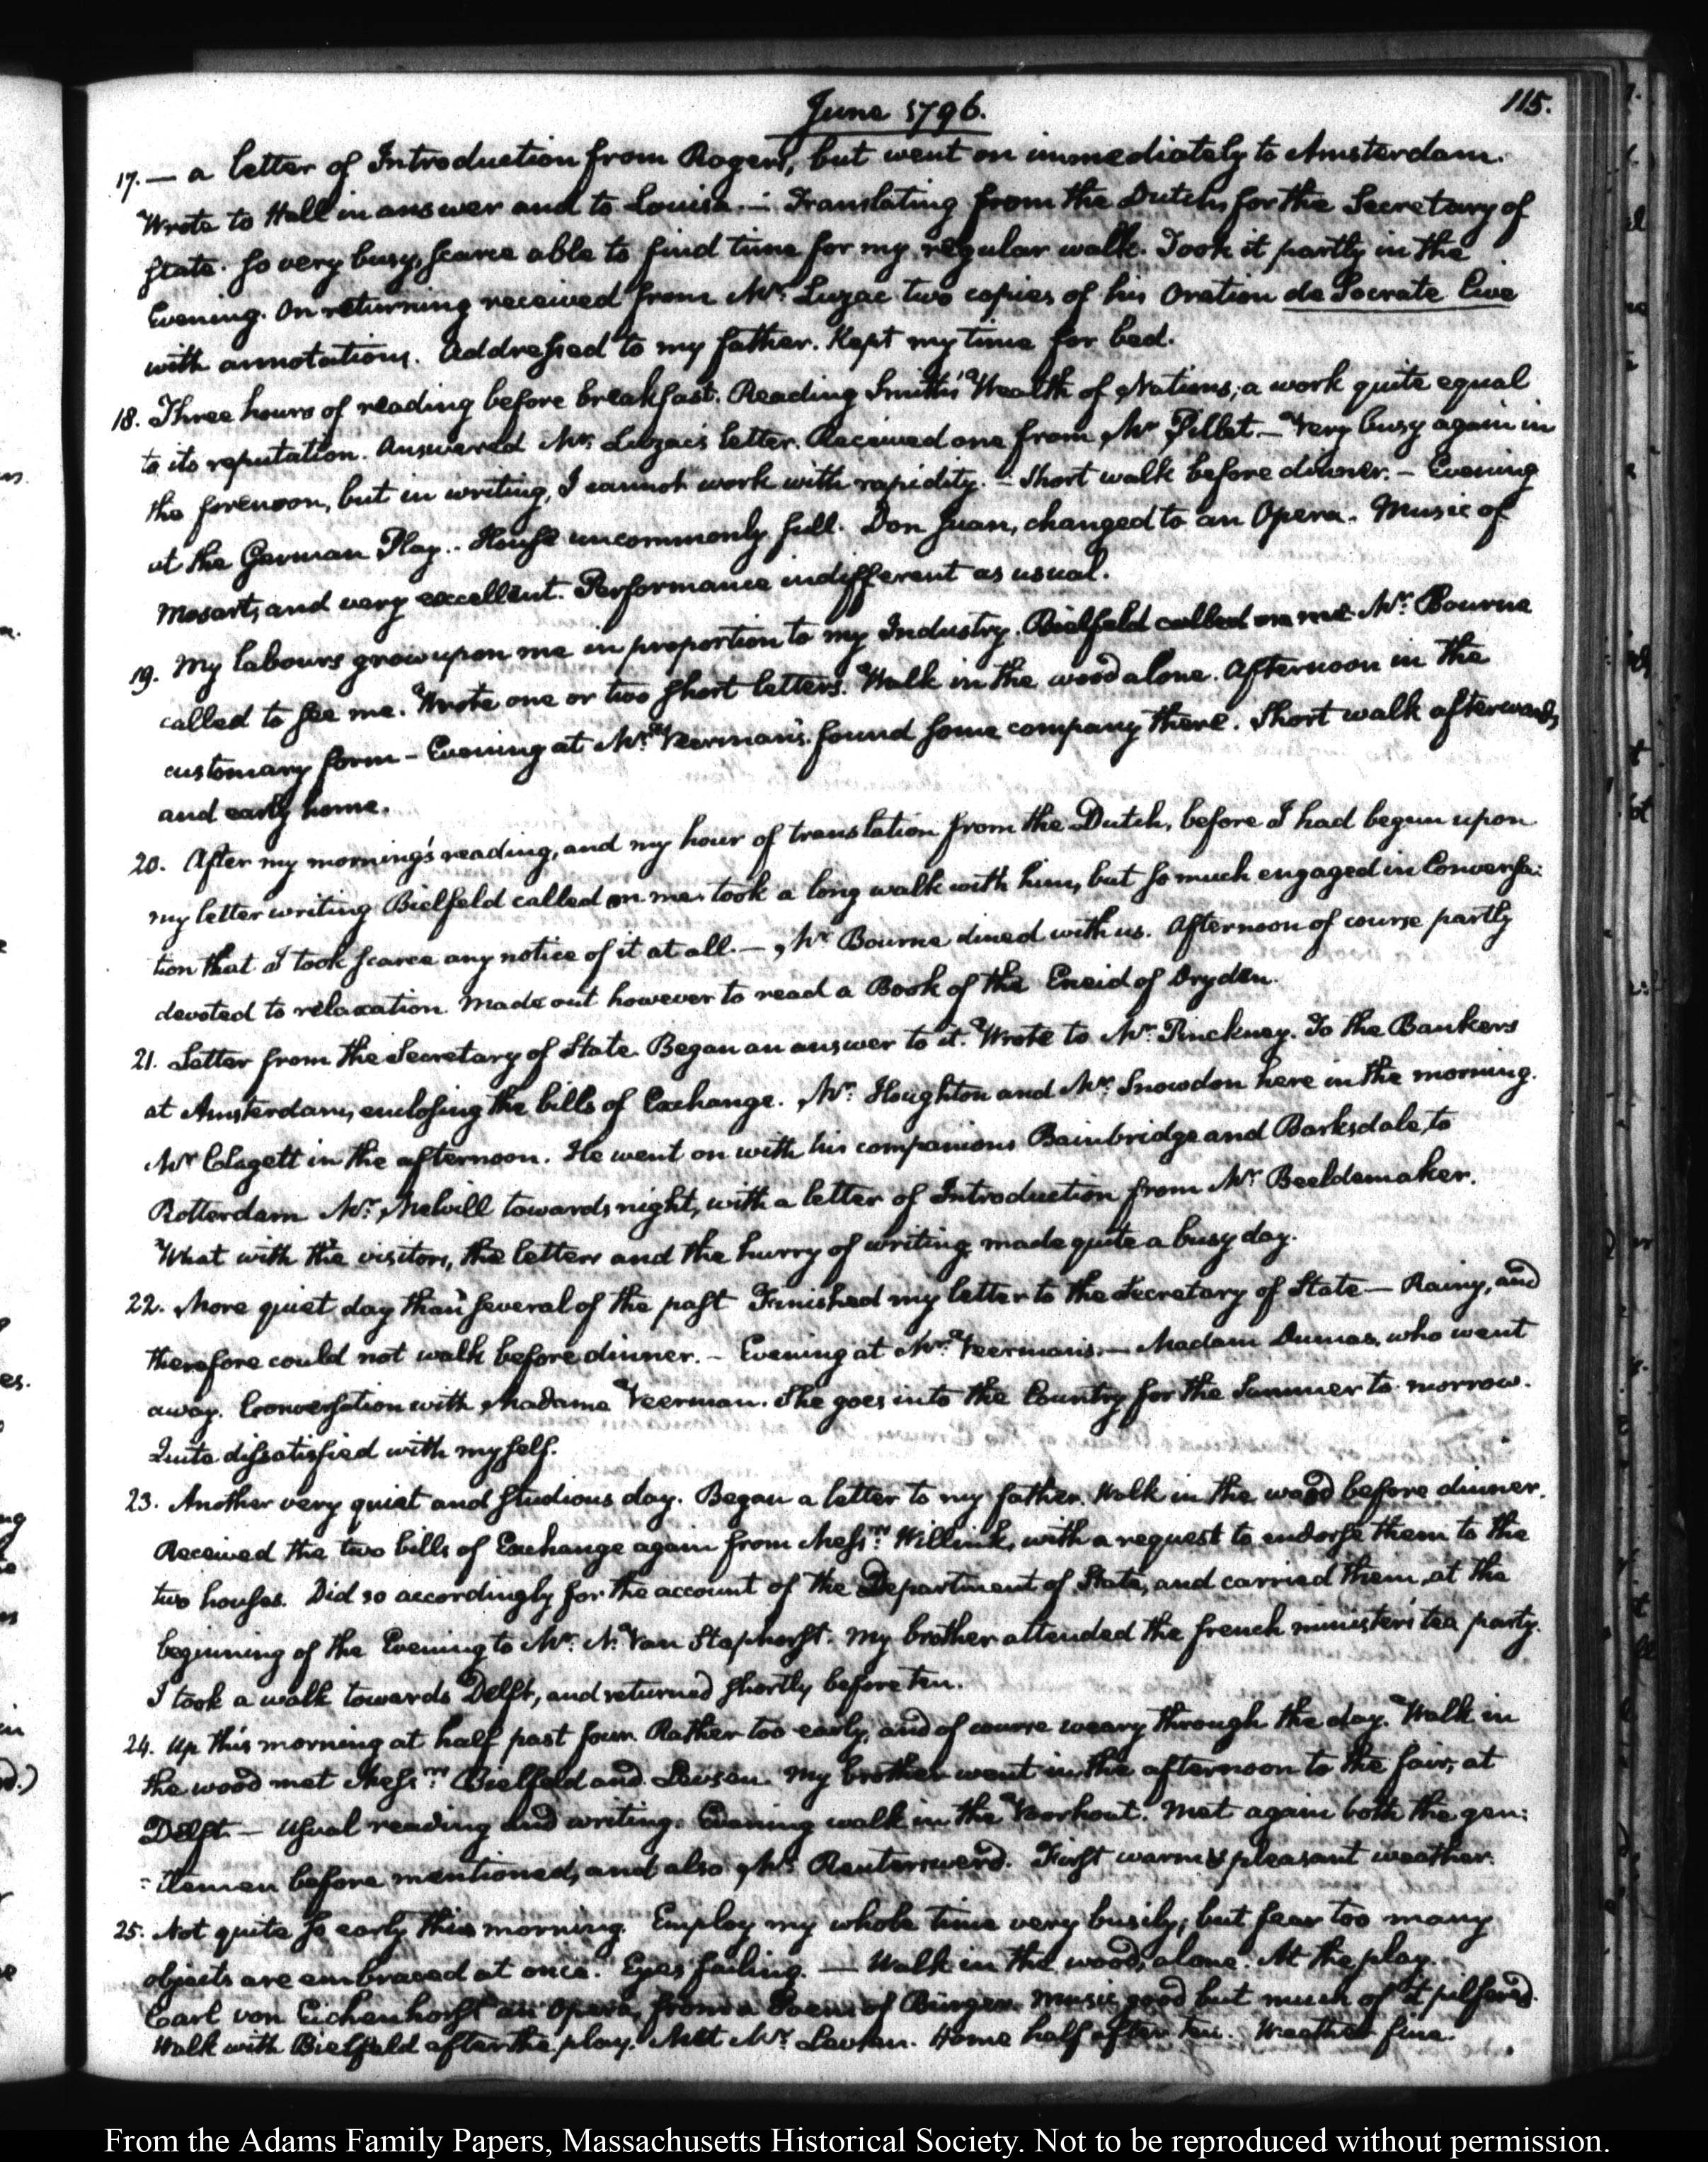 June 1796.
115.
17. — a letter of Introduction from Rogers, but went on immediately to Amsterdam.
Wrote to Hall in answer and to Louisa. — Translating from the Dutch for the Secretary of
State. So very busy, scarce able to find time for my regular walk. Took it partly in the
Evening. On returning received from Mr. Luzac two copies of his Oration de Socrate Cive
with annotations. Addressed to my father. Kept my time for bed.
18. Three hours of reading before breakfast. Reading Smith's Wealth of Nations, a work quite equal
to its reputation. Answered Mr. Luzac's letter. Received one from Mr Pillet. — Very busy again in
the forenoon, but in writing, I cannot work with rapidity. — Short walk before dinner. — Evening
at the German Play. . House uncommonly full. Don Juan, changed to an Opera. Music of
Mosart, and very excellent. Performance indifferent as usual.
19. My labours grow upon me in proportion to my Industry. Bielfeld called on me Mr. Bourne
called to see me. Wrote one or two short letters. Walk in the wood alone. Afternoon in the
customary form — Evening at Mr. Veerman's. found some company there. Short walk afterwards,
and early home.
20. After my morning's reading, and my hour of translation from the Dutch, before I had begun upon
my letter writing Bielfeld called on me. took a long walk with him, but so much engaged in Conversa:
tion that I took scarce any notice of it at all. — Mr. Bourne dined with us. Afternoon of course partly
devoted to relaxation. Made out however to read a Book of the Eneid of Dryden.
21. Letter from the Secretary of State. Began an answer to it. Wrote to Mr. Pinckney. To the Bankers
at Amsterdam, enclosing the bills of Exchange. Mr. Houghton and Mr. Snowdon here in the morning.
Mr Clagett in the afternoon. He went on with his companions Bainbridge and Barksdale, to
Rotterdam Mr. Melvill towards night, with a letter of Introduction from Mr Beeldemaker.
What with the visitors, the letters and the hurry of writing, made quite a busy day.
22. More quiet day than several of the past Finished my letter to the Secretary of State — Rainy, and
therefore could not walk before dinner. — Evening at Mr. Veerman's. — Madam Dumas, who went
away. Conversation with Madame Veerman. She goes into the Country for the Summer to-morrow.
Quite dissatisfied with myself.
23. Another very quiet and studious day. Began a letter to my father. Walk in the wood before dinner.
Received the two bills of Exchange again from Messrs. Willink, with a request to endorse them to the
two houses. Did so accordingly for the account of the Department of State, and carried them, at the
beginning of the Evening to Mr. N. Van Staphorst. My brother attended the french minister's tea party.
I took a walk towards Delft, and returned shortly before ten.
24. Up this morning at half past four. Rather too early, and of course weary through the day. Walk in
the wood met Messrs. Bielfeld and Levsen. My brother went in the afternoon to the fair, at
Delft. — Usual reading and writing. Evening walk in the Voorhout. Met again both the gen:
:tlemen before mentioned, and also Mr. Reuterswerd. First warm & pleasant weather.
25. Not quite so early this morning. Employ my whole time very busily, but fear too many
objects are embraced at once. Eyes failing. — Walk in the wood, alone. At the play.
Carl von Eichenhorst an Opera, from a Poem of Bürger. Music good but much of it pilfered.
Walk with Bielfeld after the play. Met Mr. Levsen. Home half after ten. Weather fine.
From the Adams Family Papers, Massachusetts Historical Society. Not to be reproduced without permission.